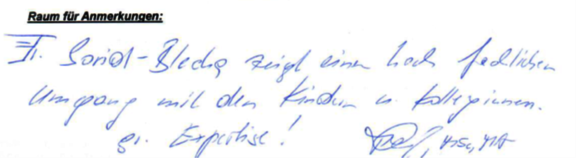 Raum für Anmerkungen:
zeigt einen hoch fachlichen
Umgang mit den Kindern u. Kolleginnen.
gr. Expertise!